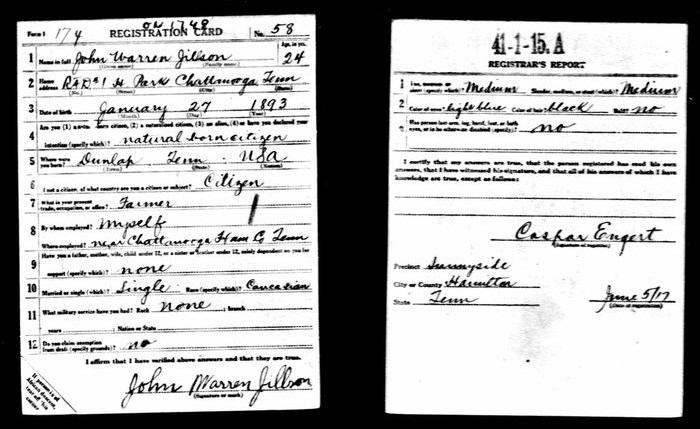 on 1748
Form 1 174 REGISTRATION CARD No. 58
1 Name in full John Warren Jillson Age, in yrs. 24
(Given name) (Family name)
2 Home address R F D #1 H. Park Chattanooga Tenn
(No.) (Street) (City) (State)
3 Date of birth January 27 1893
(Month) (Day) (Year)
4 Are you (1) a natural-born citizen, (2) a naturalized citizen, (3) an alien, (4) or have you declared your
intention (specify which)? natural born citizen
5 Where were you born? Dunlap Tenn USA
(Town) (State) (Nation)
6 If not a citizen, of what country are you a citizen or subject? Citizen
7 What is your present trade, occupation, or office? Farmer
8 By whom employed? Myself
Where employed? near Chattanooga Ham Co Tenn
9 Have you a father, mother, wife, child under 12, or a sister or brother under 12, solely dependent on you for
support (specify which)? none
10 Married or single (which)? Single Race (specify which)? Caucasian
11 What military service have you had? Rank None ; branch
years ; Nation or State
12 Do you claim exemption from draft (specify grounds)? no
I affirm that I have verified above answers and that they are true.
John Warren Jillson
(Signature or mark)
If person is of African descent, tear off this corner
41-1-15. A
REGISTRAR'S REPORT
1 Tall, medium, or short (specify which)? Medium Slender, medium, or stout (which)? Medium
2 Color of eyes? light blue Color of hair? black Bald? no
3 Has person lost arm, leg, hand, foot, or both
eyes, or is he otherwise disabled (specify)? no
I certify that my answers are true, that the person registered has read his own
answers, that I have witnessed his signature, and that all of his answers of which I have
knowledge are true, except as follows:
Caspar Engert
(Signature of registrar)
Precinct Sunnyside
City or County Hamilton
State Tenn June 5/17
(Date of registration)